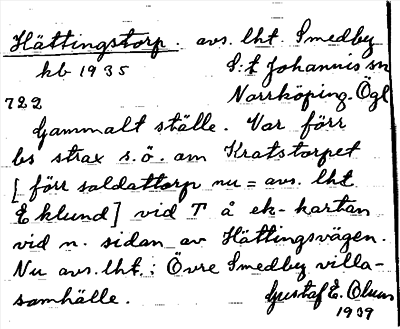 Hättingstorp. avs. lht. Smedby
kb 1935 S:t Johannis sn
722 Norrköping. Ögl
Gammalt ställe. Var förr
bs strax s.ö. om Kratstorpet
[förr soldattorp nu = avs. lht
Eklund] vid T å ek-kartan
vid n. sidan av Hättingsvägen.
Nu avs. lht.: Övre Smedby villa-
samhälle. Gustaf E. Olsson
1939